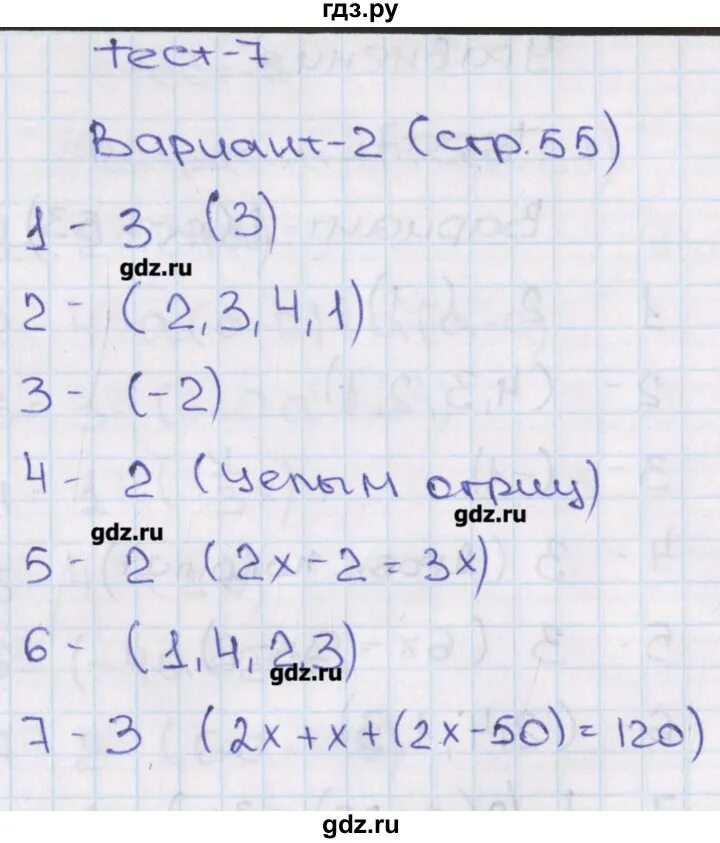 гдз.ру
тест-7
Вариант-2 (стр.55)
1 - 3 (3)
gdz.ru
2 - (2,3,4,1)
3 - (-2)
4 - 2 (целым отриц)
gdz.ru
gdz.ru
5 - 2 (2x-2=3x)
6 - (1,4,2,3)
gdz.ru
7 - 3 (2x+x+(2x-50)=120)
gdz.ru